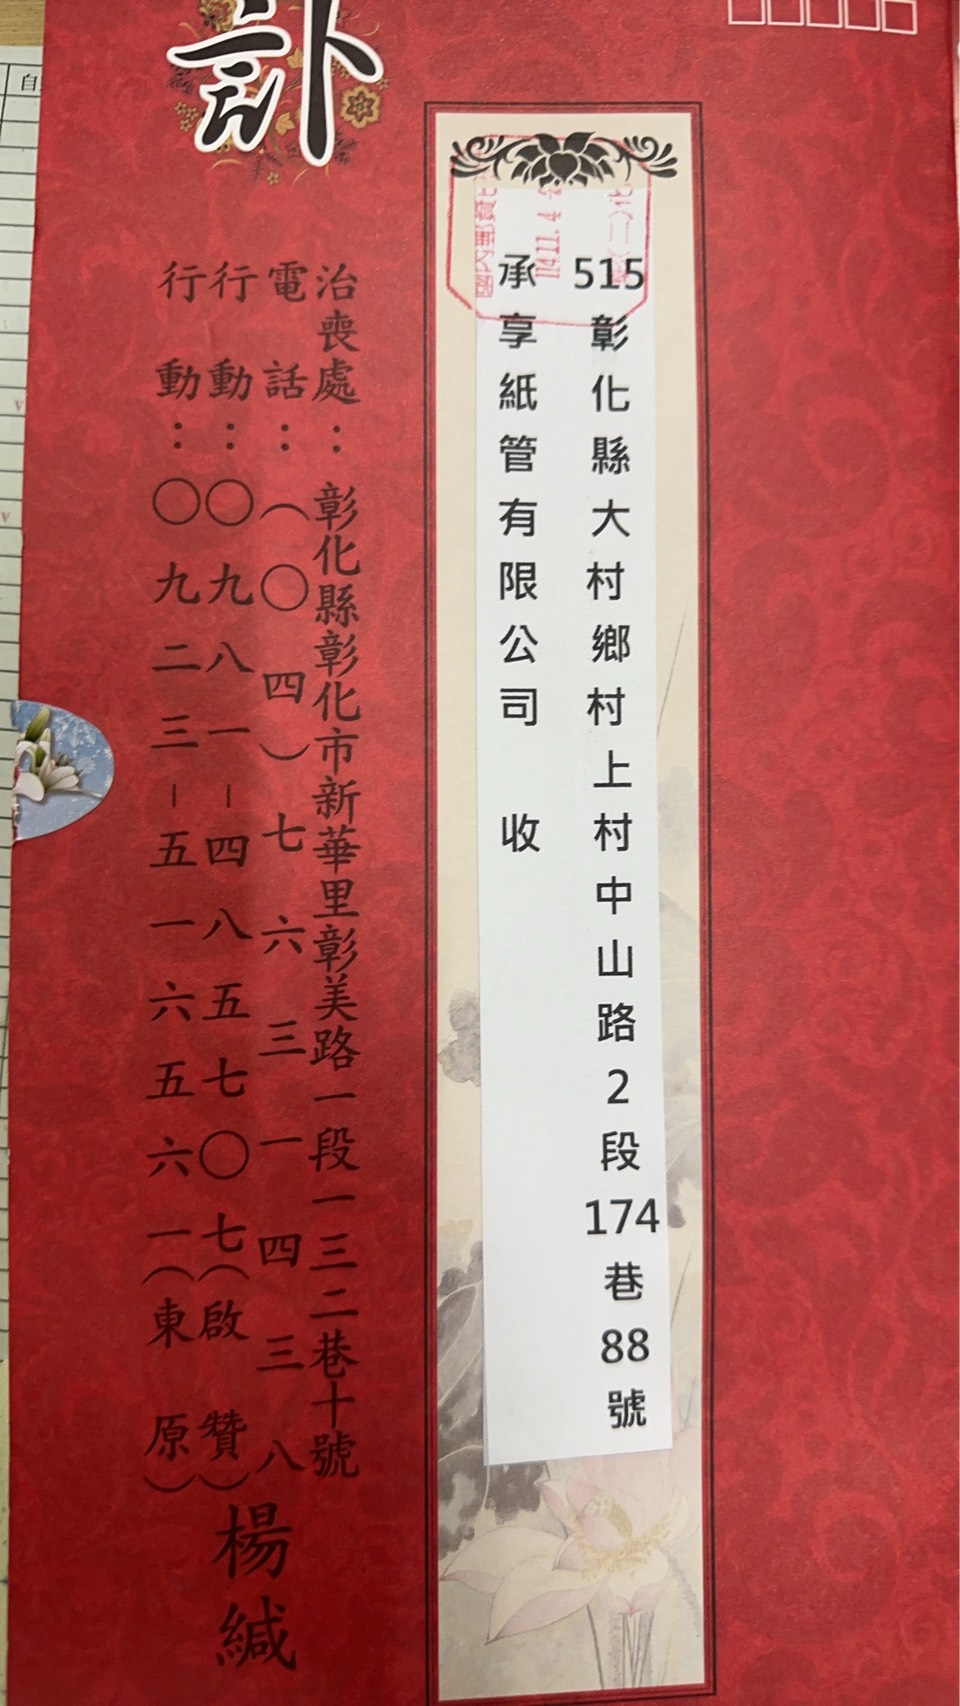 515彰化縣大村鄉村上村中山路2段174巷88號
承享紙管有限公司 收
訃
治喪處：彰化縣彰化市新華里彰美路一段一三二巷十號
電話：（〇四）七六三一四三八
行動：〇九八一－四八五七〇七（啟贊）
行動：〇九二三－五一六五六一（東原）
楊緘
114.11.4
自